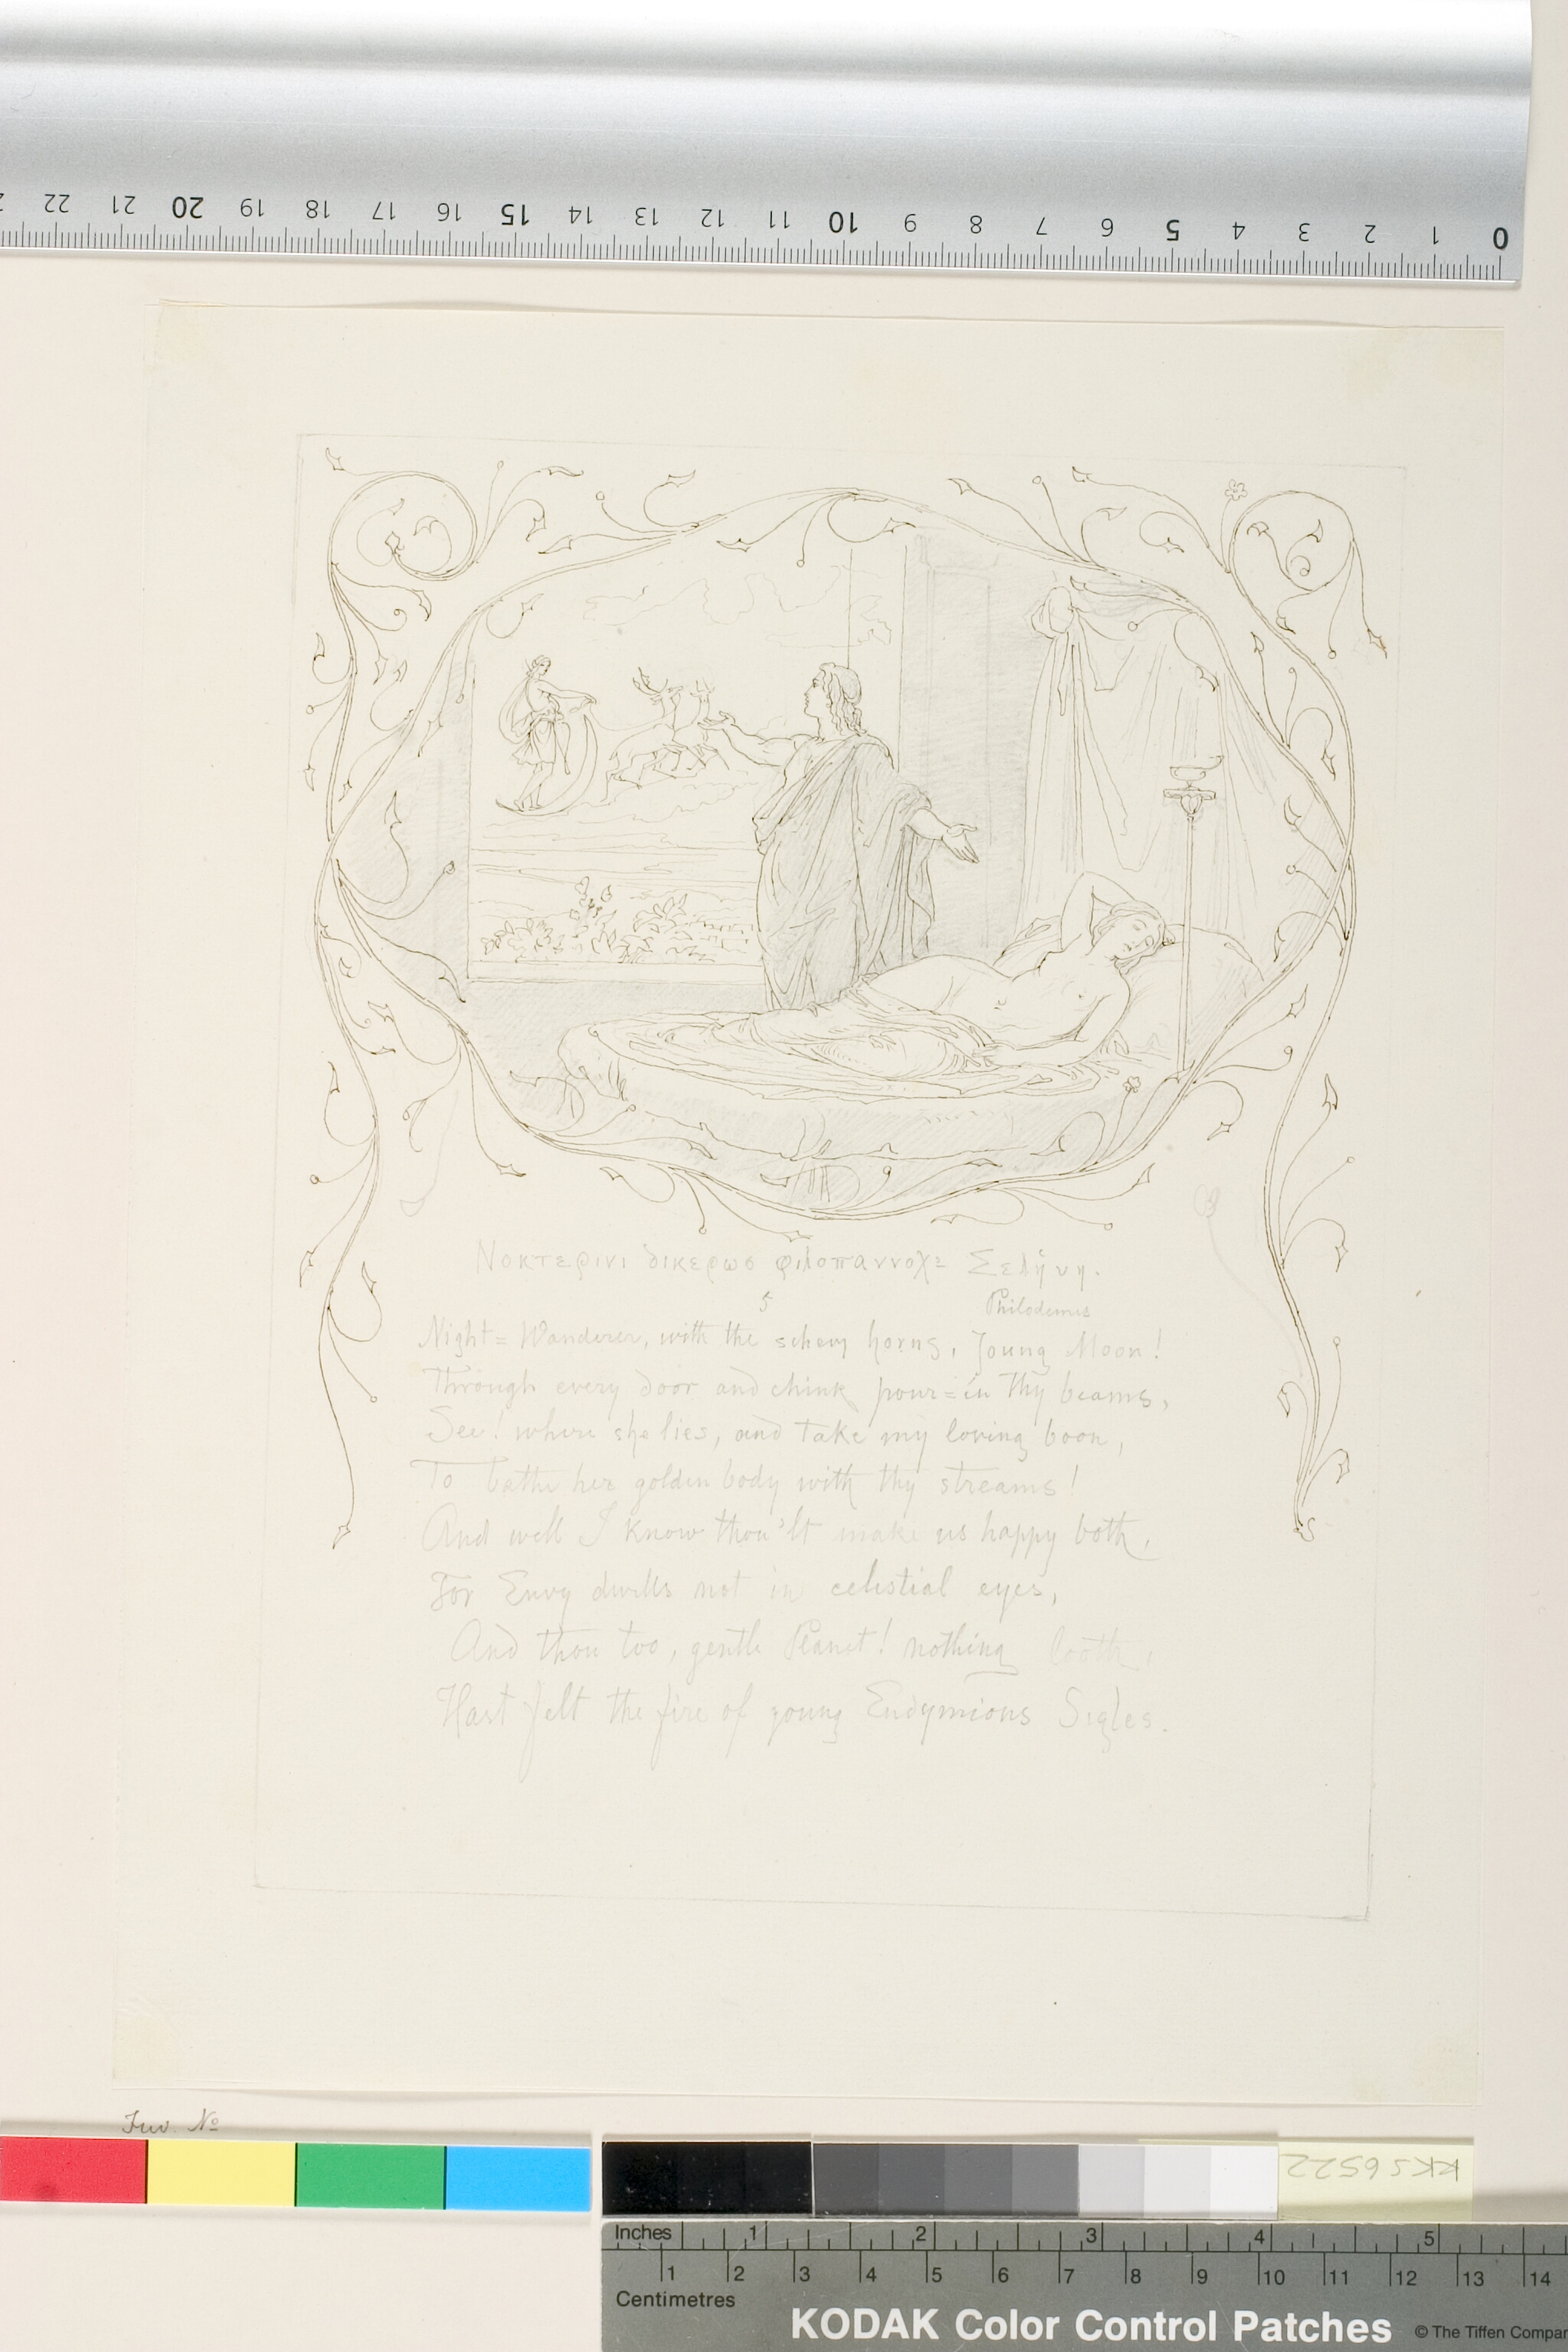 22 21 20 19 18 17 16 15 14 13 12 11 10 9 8 7 6 5 4 3 2 1 0
Νοκτερινι δικερωσ φιλοπαννοχε Σελήνη.
Philodemus
5
Night= Wanderer, with the horns, Joung Moon!
Through every door and chink pour=in Thy beams,
See! where she lies, and take my loving boon,
To bathe her golden body with thy streams!
And well I know thou'lt make us happy both,
For Envy dwells not in celestial eyes,
And thou too, gentle Planet! nothing looth,
Hast felt the fire of young Endymions Sigles.
Inv. No
KKS6522
Inches 1 2 3 4 5
1 2 3 4 5 6 7 8 9 10 11 12 13 14
Centimetres
KODAK Color Control Patches © The Tiffen Compa